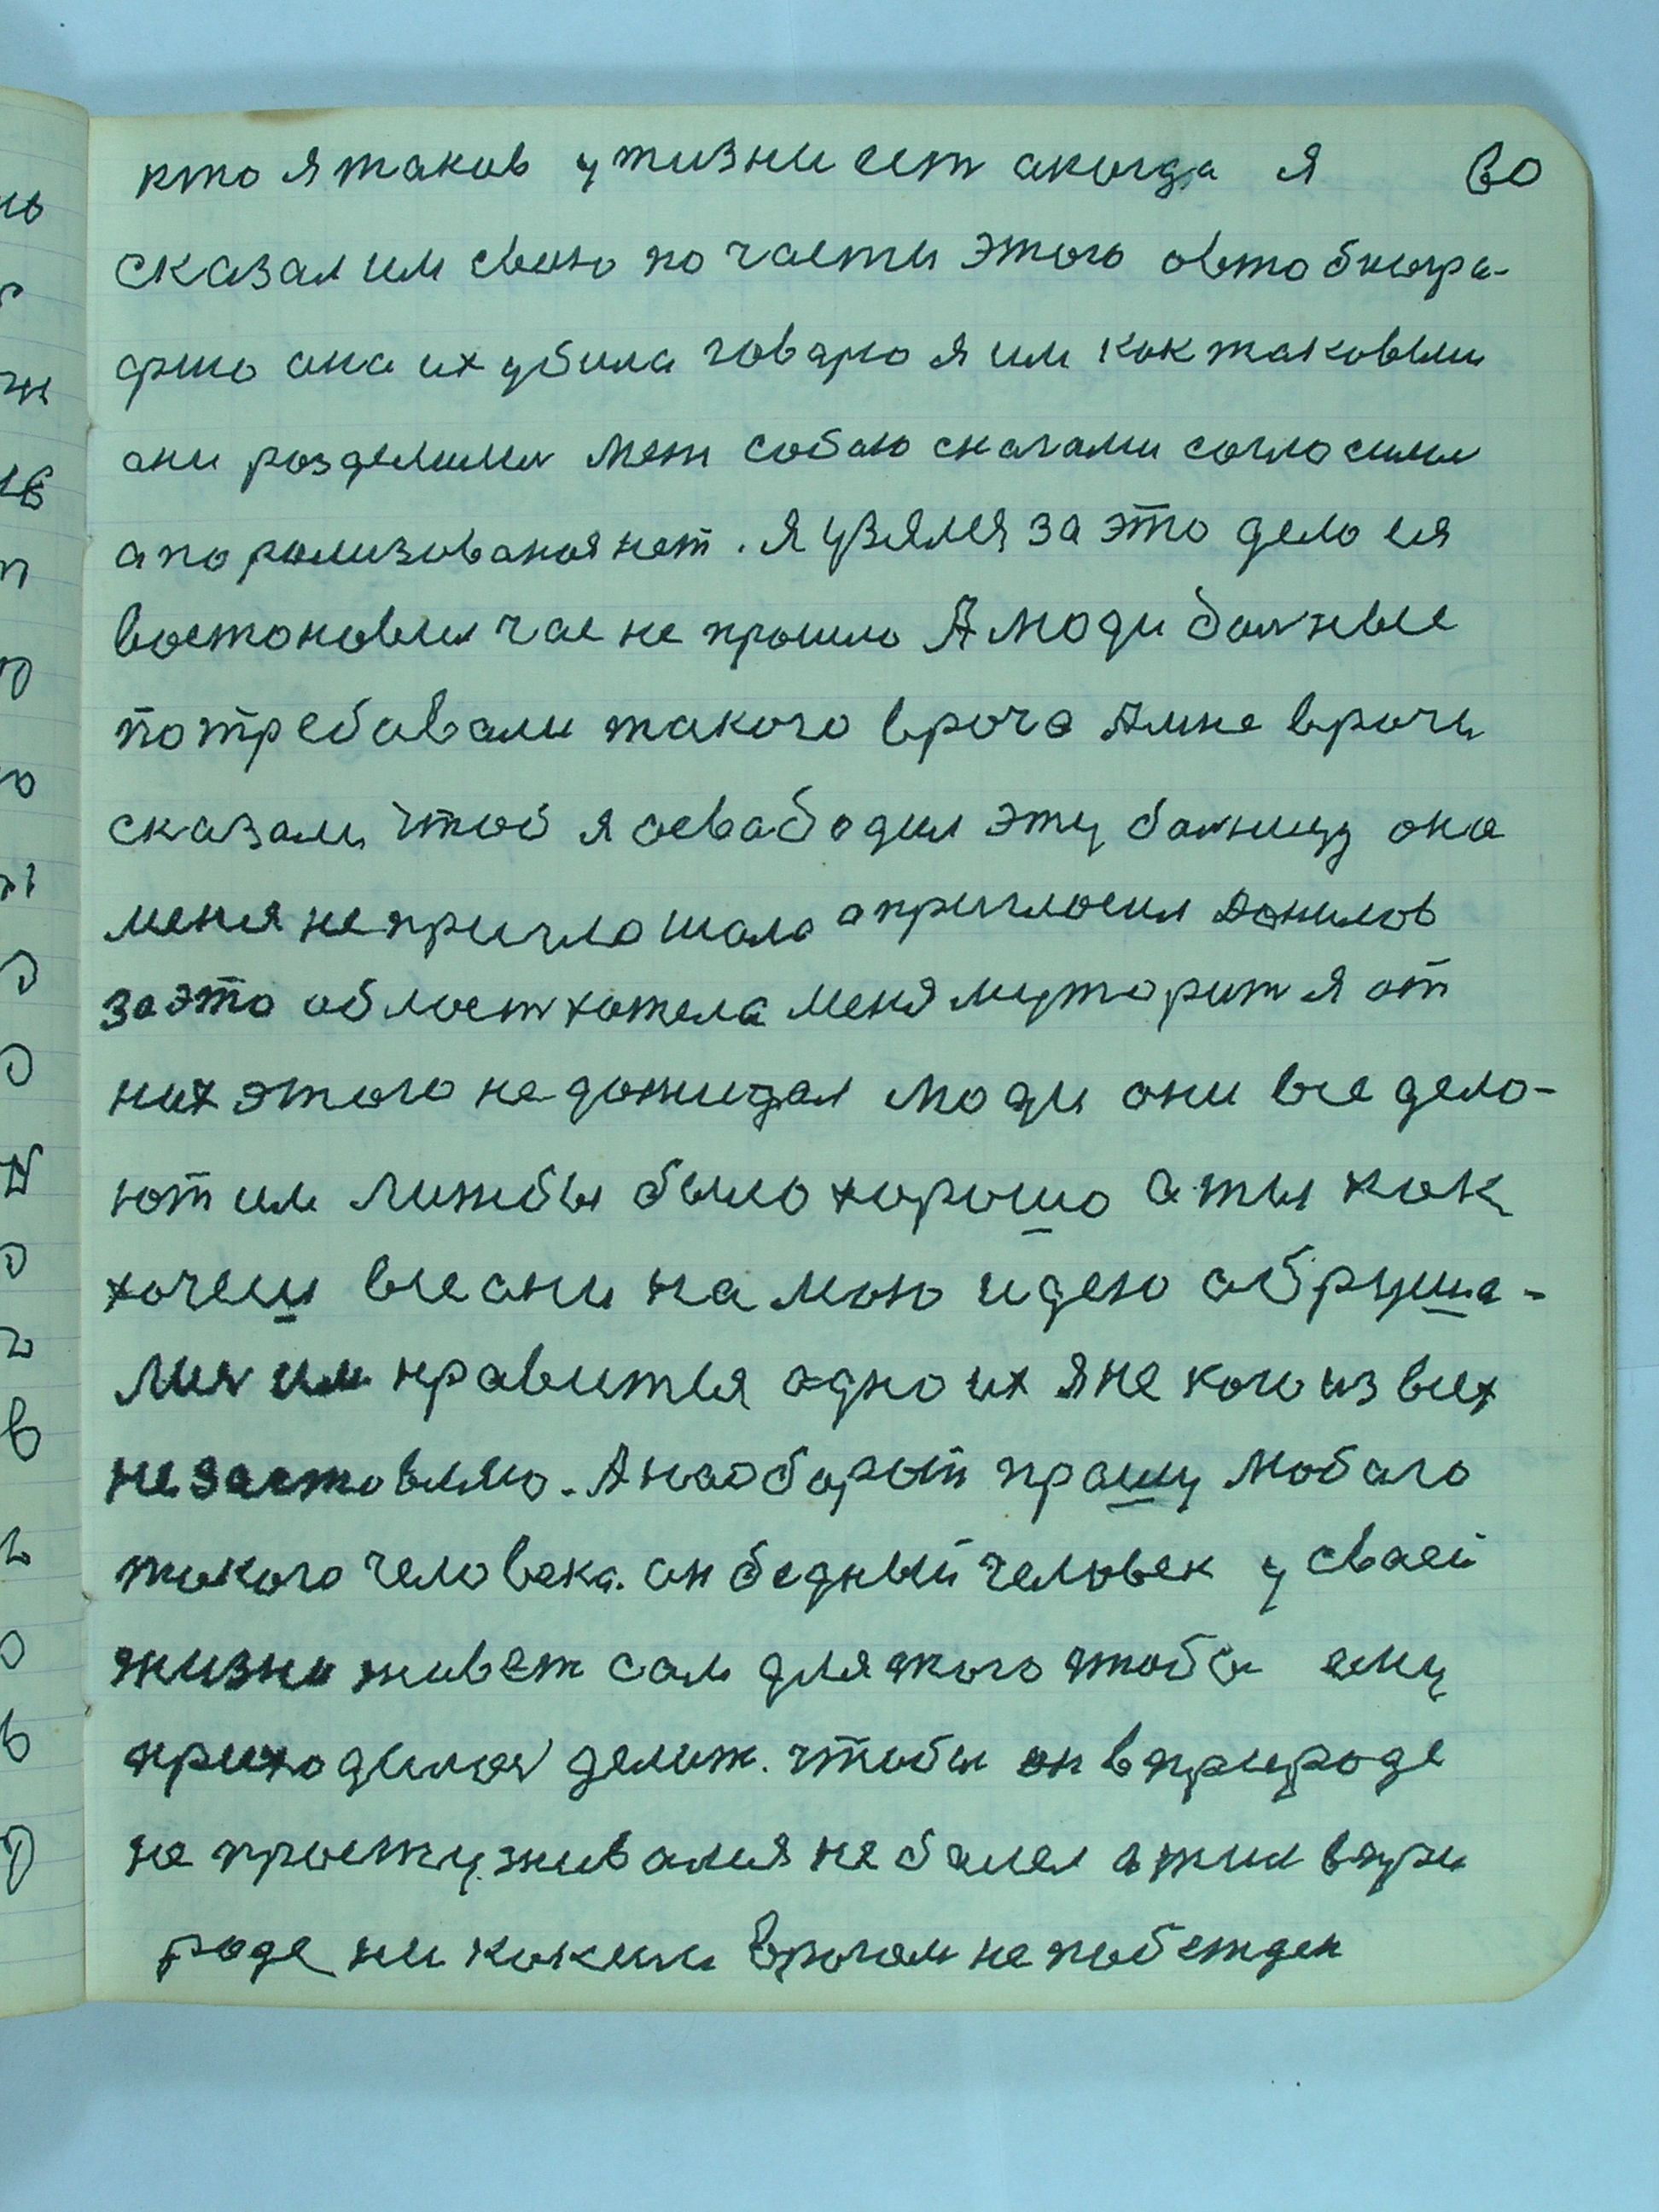 кто я таков у жизни ест а когда я 60
сказал им свою по части этого овтобиогра-
фию ана их убила говарю я им как таковым
ани розделилис меж собаю сначали согласилис
а порализованоя нет. Я узялся за это дело ея
востоновил час не прошло А люди болные
потребавали такого вроча А мне врочи
сказали, чтоб я освабодил эту болницу она
меня не приглошала а приглосил Донилов
за это облост хотела меня муторит я от
них этого не дожидал люди они все дело-
ют им лижбы было хорошо а ты как
хочеш все они на мою идею обруша-
лис им нравится одно их я не кого из всех
не заставляю. А наоборот прашу любого
такого человека. он бедный человек у сваей
жизни живет сам для того чтобы ему
приходилос делит. чтобы он в природе
не простуживался не балел а жил в при
роде ни каким врагом не побежден